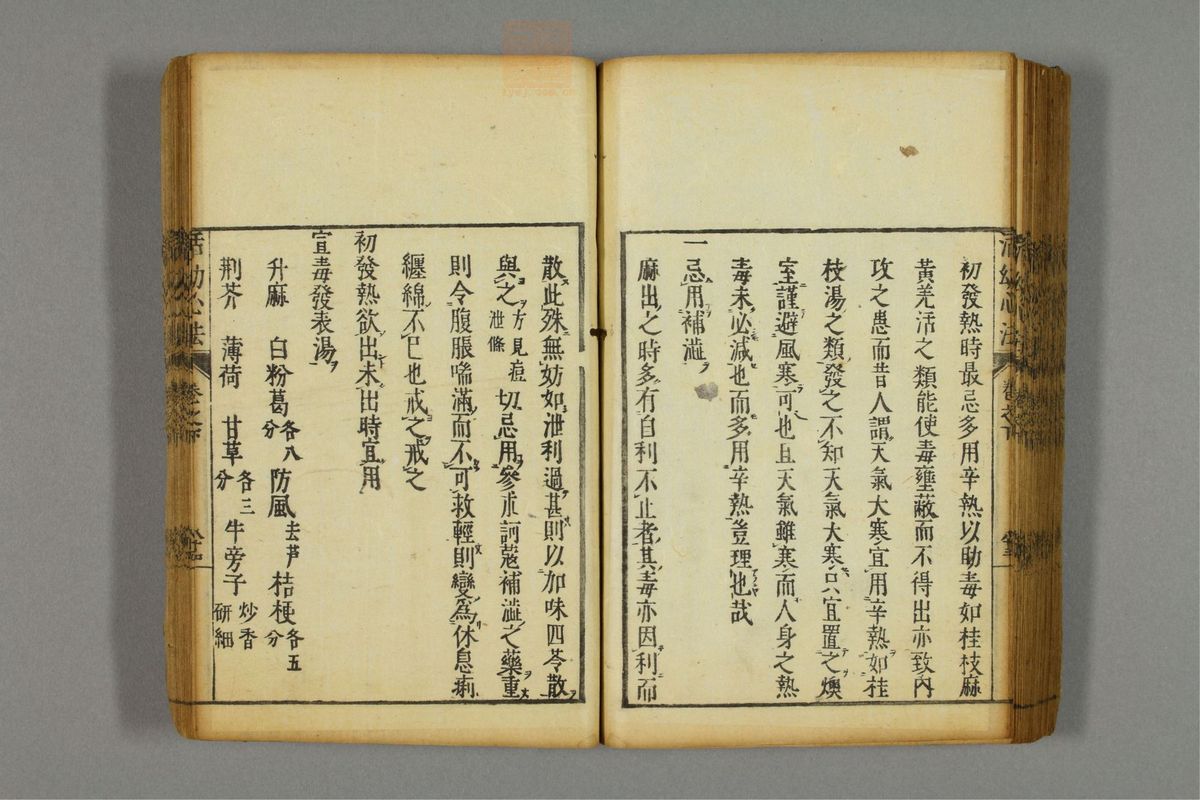 初發熱時最忌多用辛熱以助毒如桂枝麻
黃羌活之類能使毒壅蔽而不得出亦致內
攻之患而昔人謂天氣大寒宜用辛熱如桂
枝湯之類發之不知天氣大寒只宜置之燠
室謹避風寒可也且天氣雖寒而人身之熱
毒未必減也而多用辛熱豈理也哉
一忌用補澁
麻出之時多有自利不止者其毒亦因利而
散此殊無妨如泄利過甚則以加味四苓散
與之方見痘泄條切忌用參朮訶蔻補澁之藥重
則令腹脹喘滿而不可救輕則變爲休息痢
纏綿不已也戒之戒之
初發熱欲出未出時宜用
宣毒發表湯
升麻 白粉葛各八分 防風去芦 桔梗各五分
荆芥 薄荷 甘草各三分 牛旁子炒香研細
活幼心法 卷之下